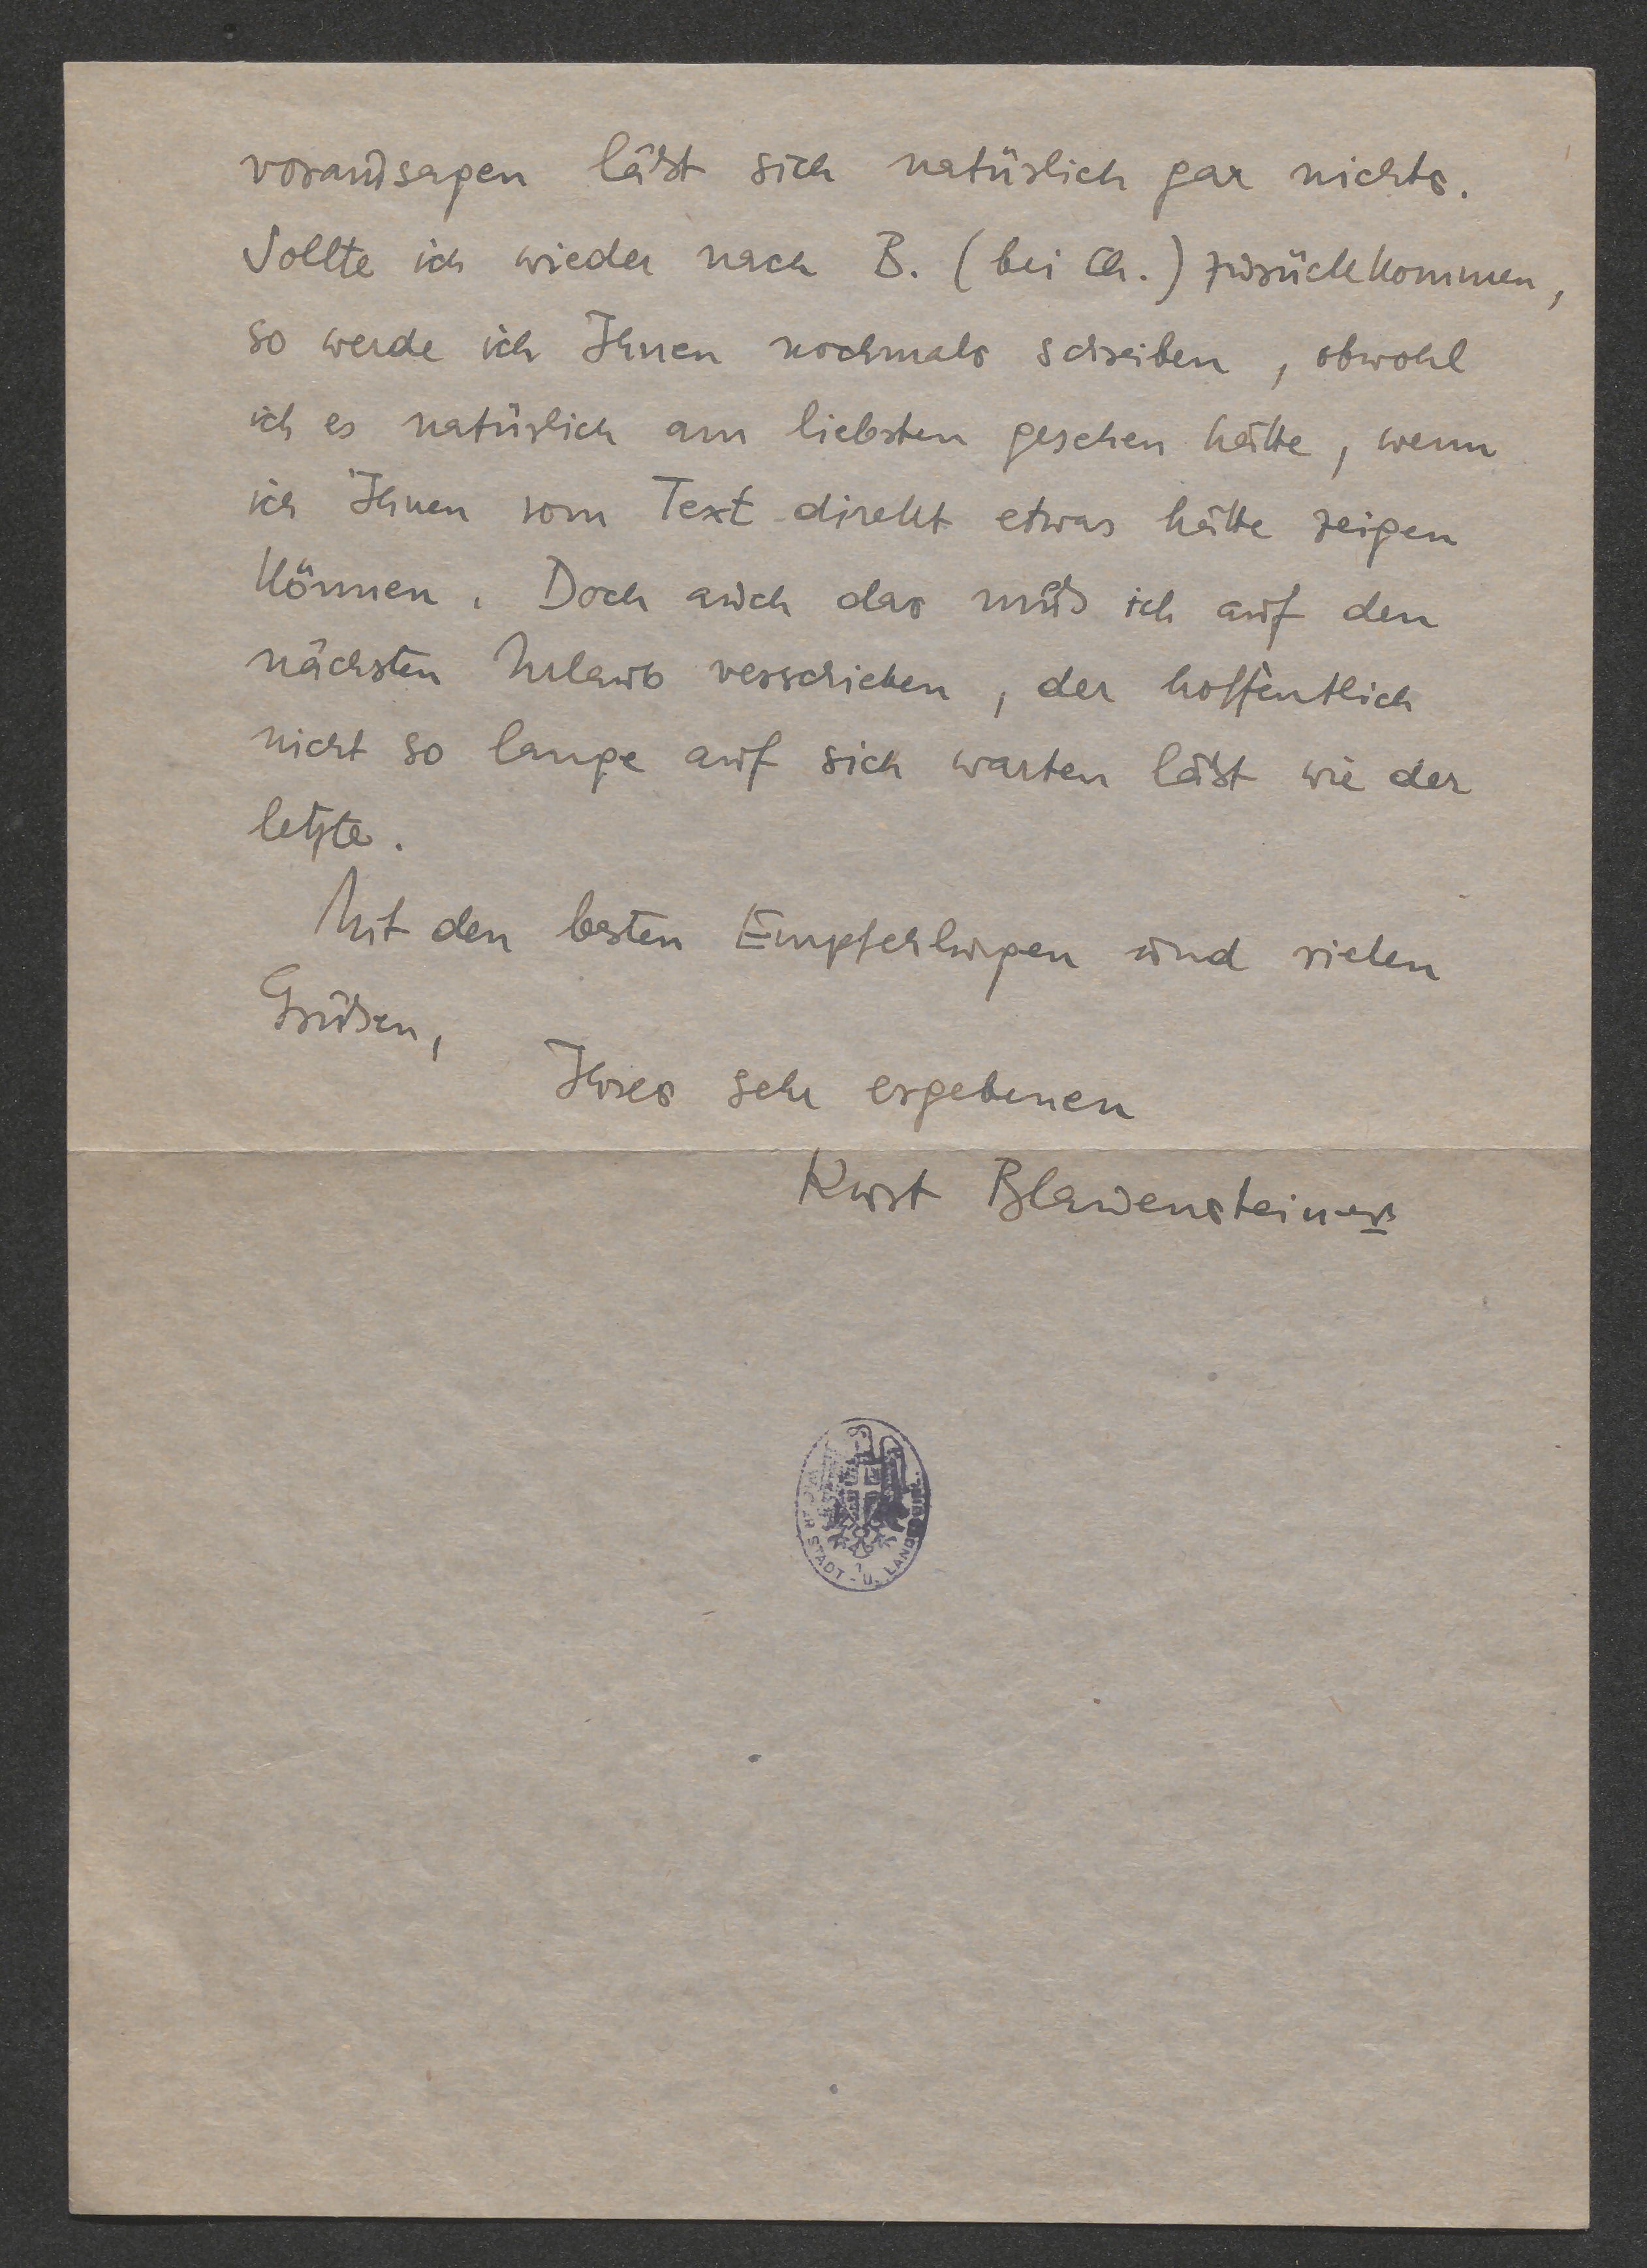 voraussagen läßt sich natürlich gar nichts.
Sollte ich wieder nach B. (bei Ch.) zurückkommen,
so werde ich Ihnen nochmals schreiben, obwohl
ich es natürlich am liebsten gesehen hätte, wenn
ich Ihnen vom Text direkt etwas hätte zeigen
können. Doch auch das muß ich auf den
nächsten Urlaub verschieben, der hoffentlich
nicht so lange auf sich warten läßt wie der
letzte.
Mit den besten Empfehlungen und vielen
Grüßen,
Ihres sehr ergebenen
Kurt Blauensteiners
STADT - U. LANDESBIBL.